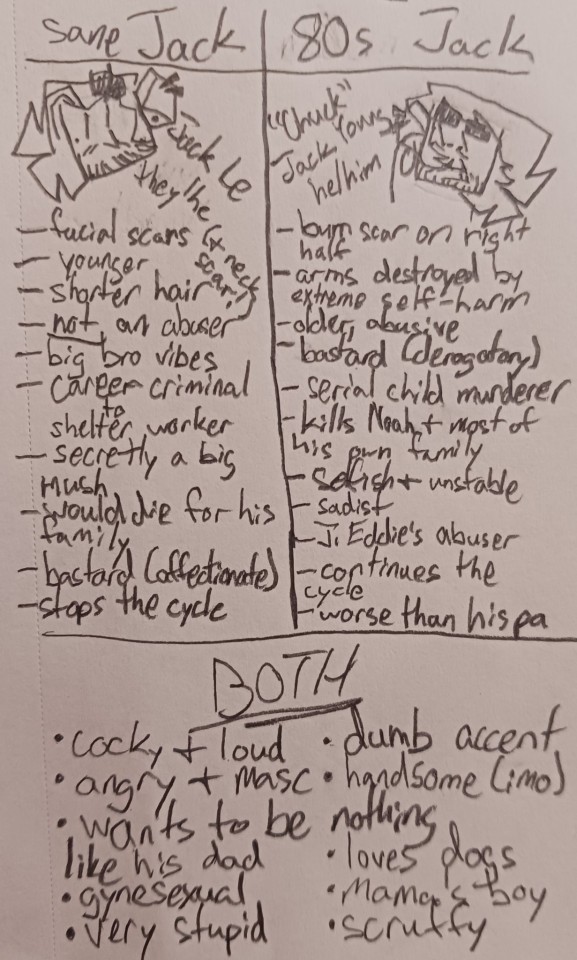 Sane Jack
Jack Le
they/he
- facial scars (x neck
scar!)
- younger
- shorter hair
- not an abuser
- big bro vibes
- career criminal
to
shelter worker
- secretly a big
mush
- would die for his
family
- bastard (affectionate)
- stops the cycle
80s Jack
"Chuck"
Jack Yours
he/him
- burn scar on right
half
- arms destroyed by
extreme self-harm
- older, abusive
- bastard (derogatory)
- serial child murderer
- kills Noah + most of
his own family
- selfish + unstable
- sadist
- J. Eddie's abuser
- continues the
cycle
- worse than his pa
BOTH
• cocky + loud
• angry + masc
• wants to be nothing
like his dad
• gynesexual
• very stupid
• dumb accent
• handsome (imo)
• loves dogs
• Mama's boy
• scruffy